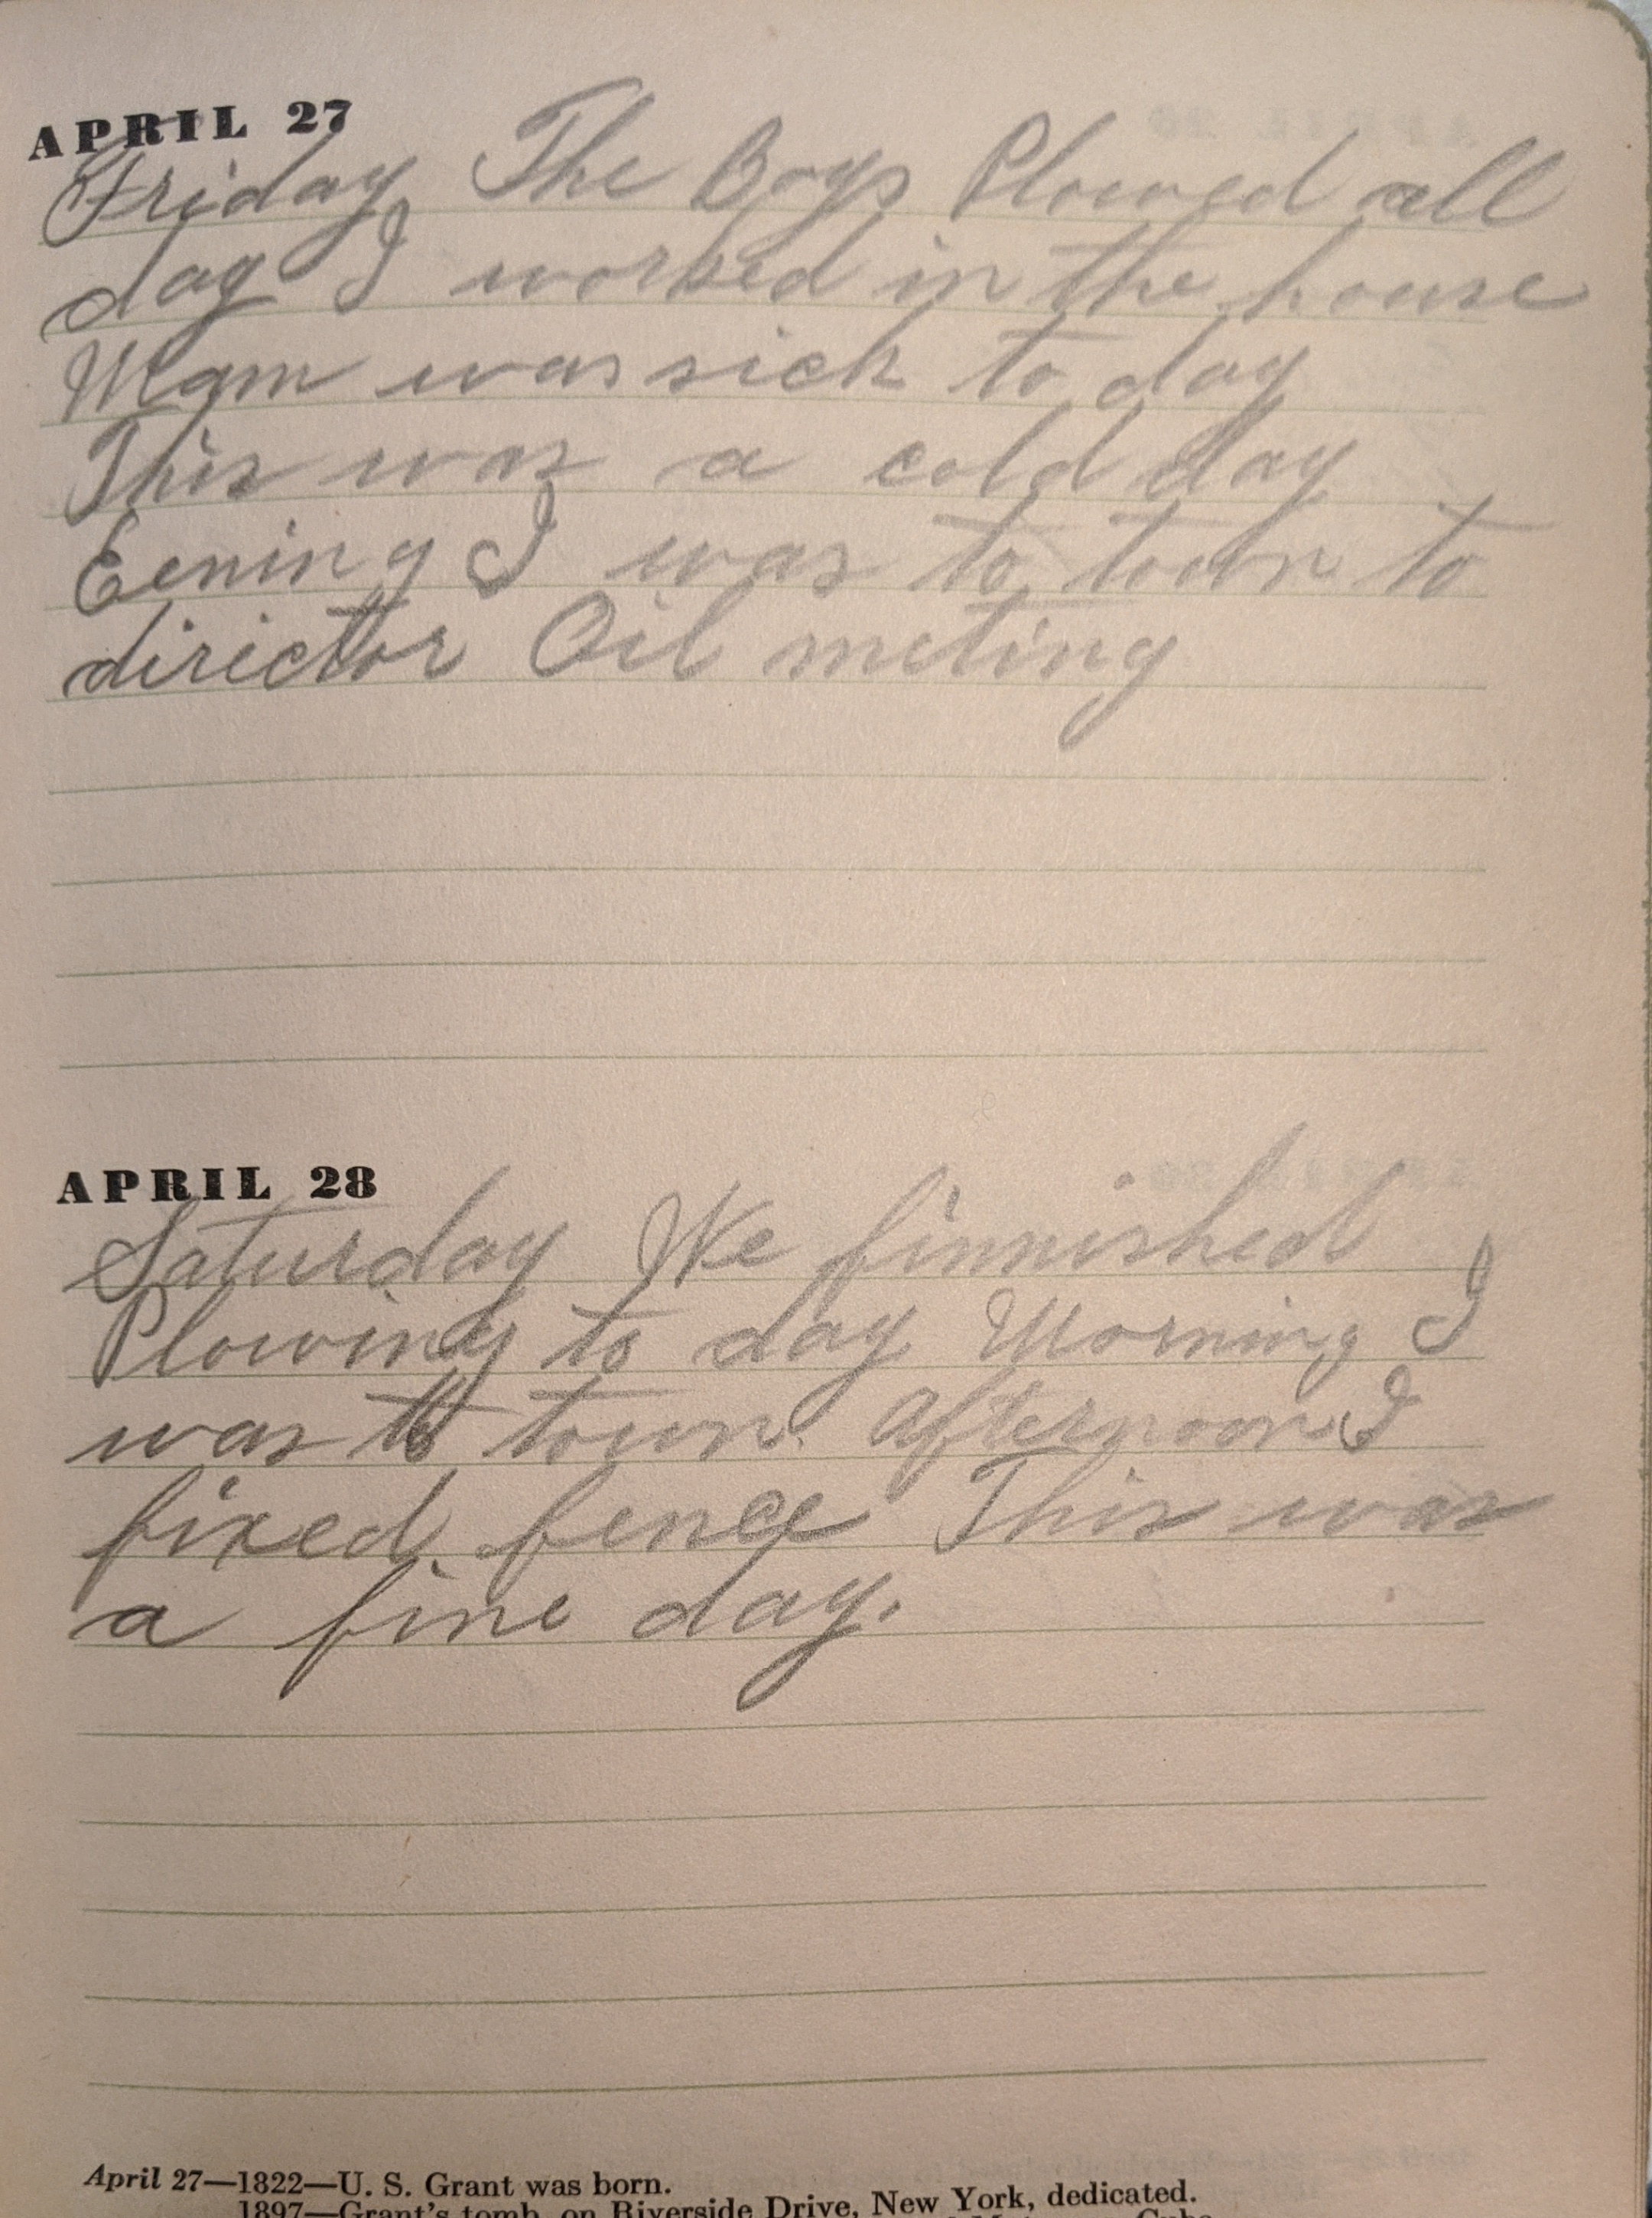 APRIL 27
Friday The Boys Plowed all
day I worked in the house
Mam was sick to day
This was a cold day
Eening I was to town to
dirictor Oil meting
APRIL 28
Saturday We finnished
Plowing to day Morning I
was to town. Afternoon I
fixed fence This was
a fine day.
April 27—1822—U. S. Grant was born.
1897—Grant's tomb, on Riverside Drive, New York, dedicated.